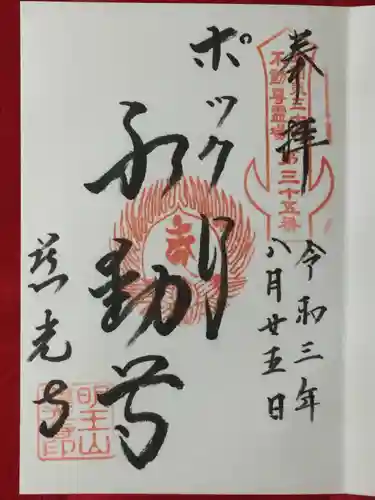 奉拝
不動尊霊場
第三十五番
令和三年
八月廿五日
ポックリ
不動尊
慈光寺
明王山